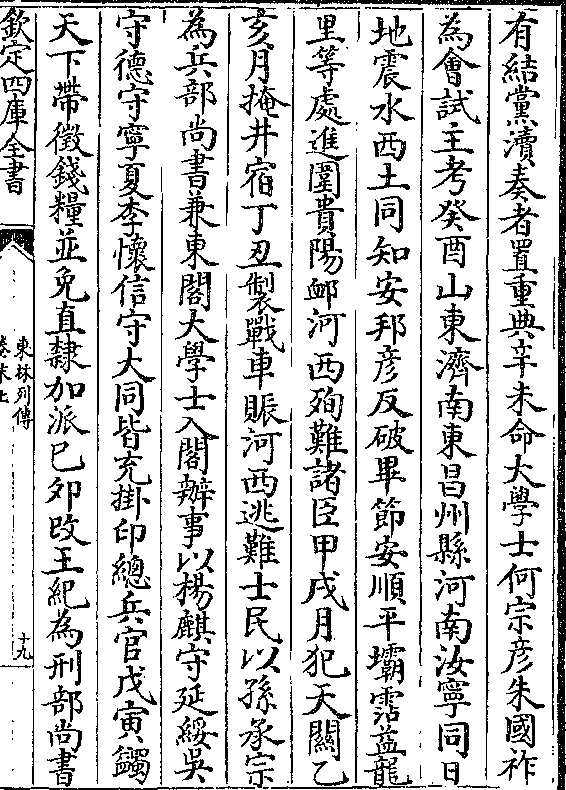 有結黨瀆奏者置重典辛未命大學士何宗彦朱國祚
為會試主考癸酉山東濟南東昌州縣河南汝寧同日
地震水西土同知安邦彦反破畢節安順平壩霑益龍
里等處進圍貴陽䘏河西殉難諸臣甲戌月犯天關乙
亥月掩井宿丁丑製戰車賑河西逃難士民以孫承宗
為兵部尚書兼東閣大學士入閣辦事以楊麒守延綏吳
守德守寧夏李懷信守大同皆充掛印總兵官戊寅蠲
天下帶徵錢糧並免直隸加派已夘改王紀為刑部尚書
欽定四庫全書
東林列傳
卷末上
十九